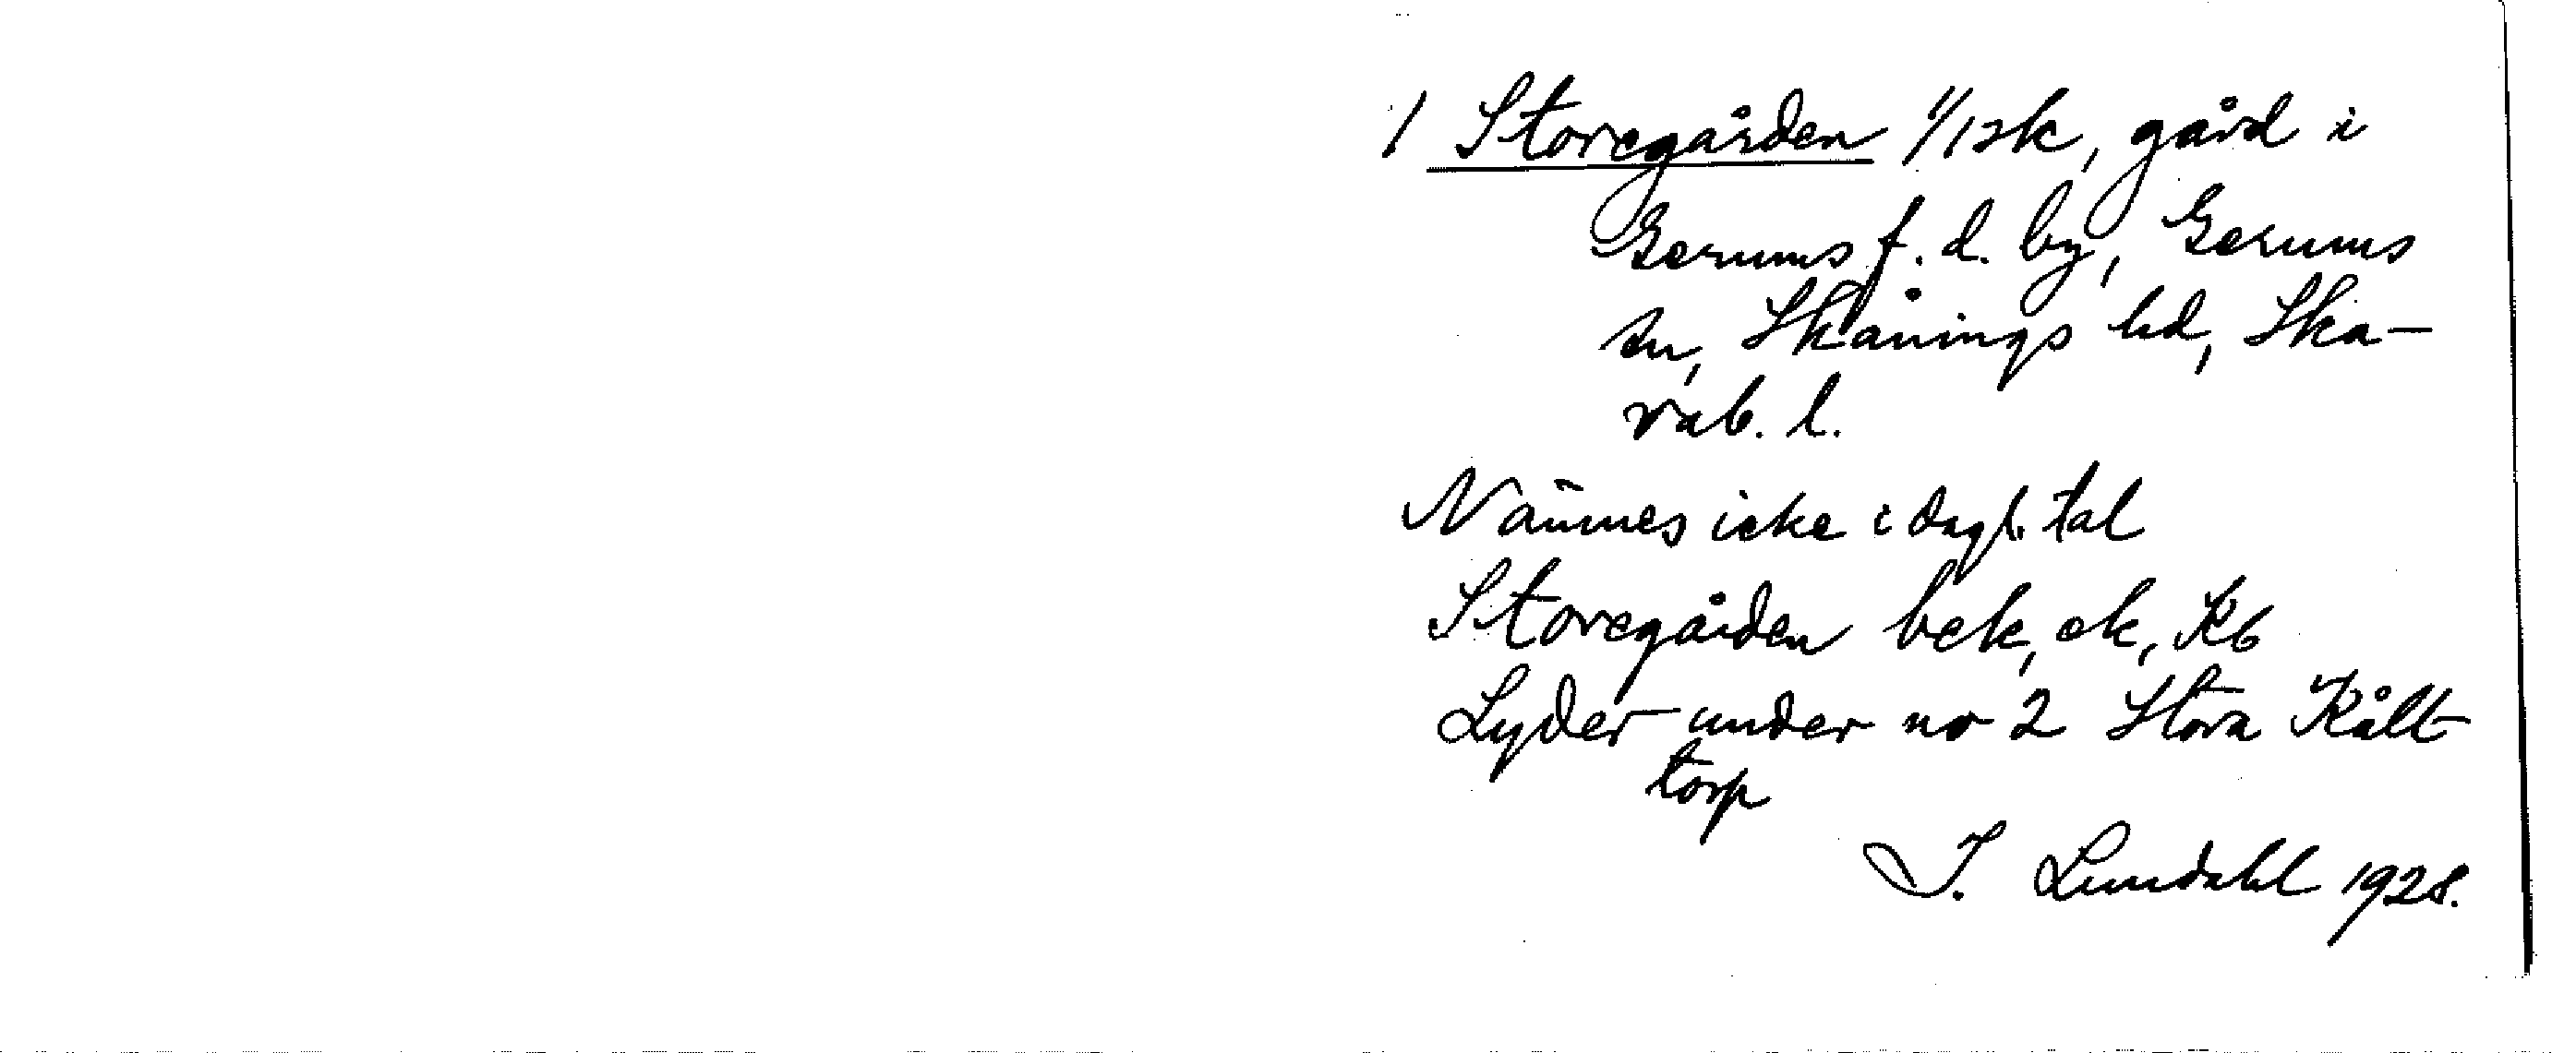 1 Storegården 1/1 sk, gård i
Gerums f. d. by, Gerums
sn, Skånings hd, Ska-
rab. l.
Nämnes icke i dagl. tal
Storegården bek, ek, Kb
Lyder under no 2 Stora Kålt-
torp
I. Lundahl 1928.